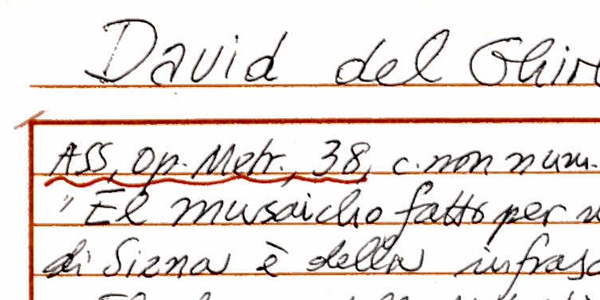 David del Ghir
ASS, Op. Metr., 38, c. non num.
"El musaicho fatto per
di Siena è della infras